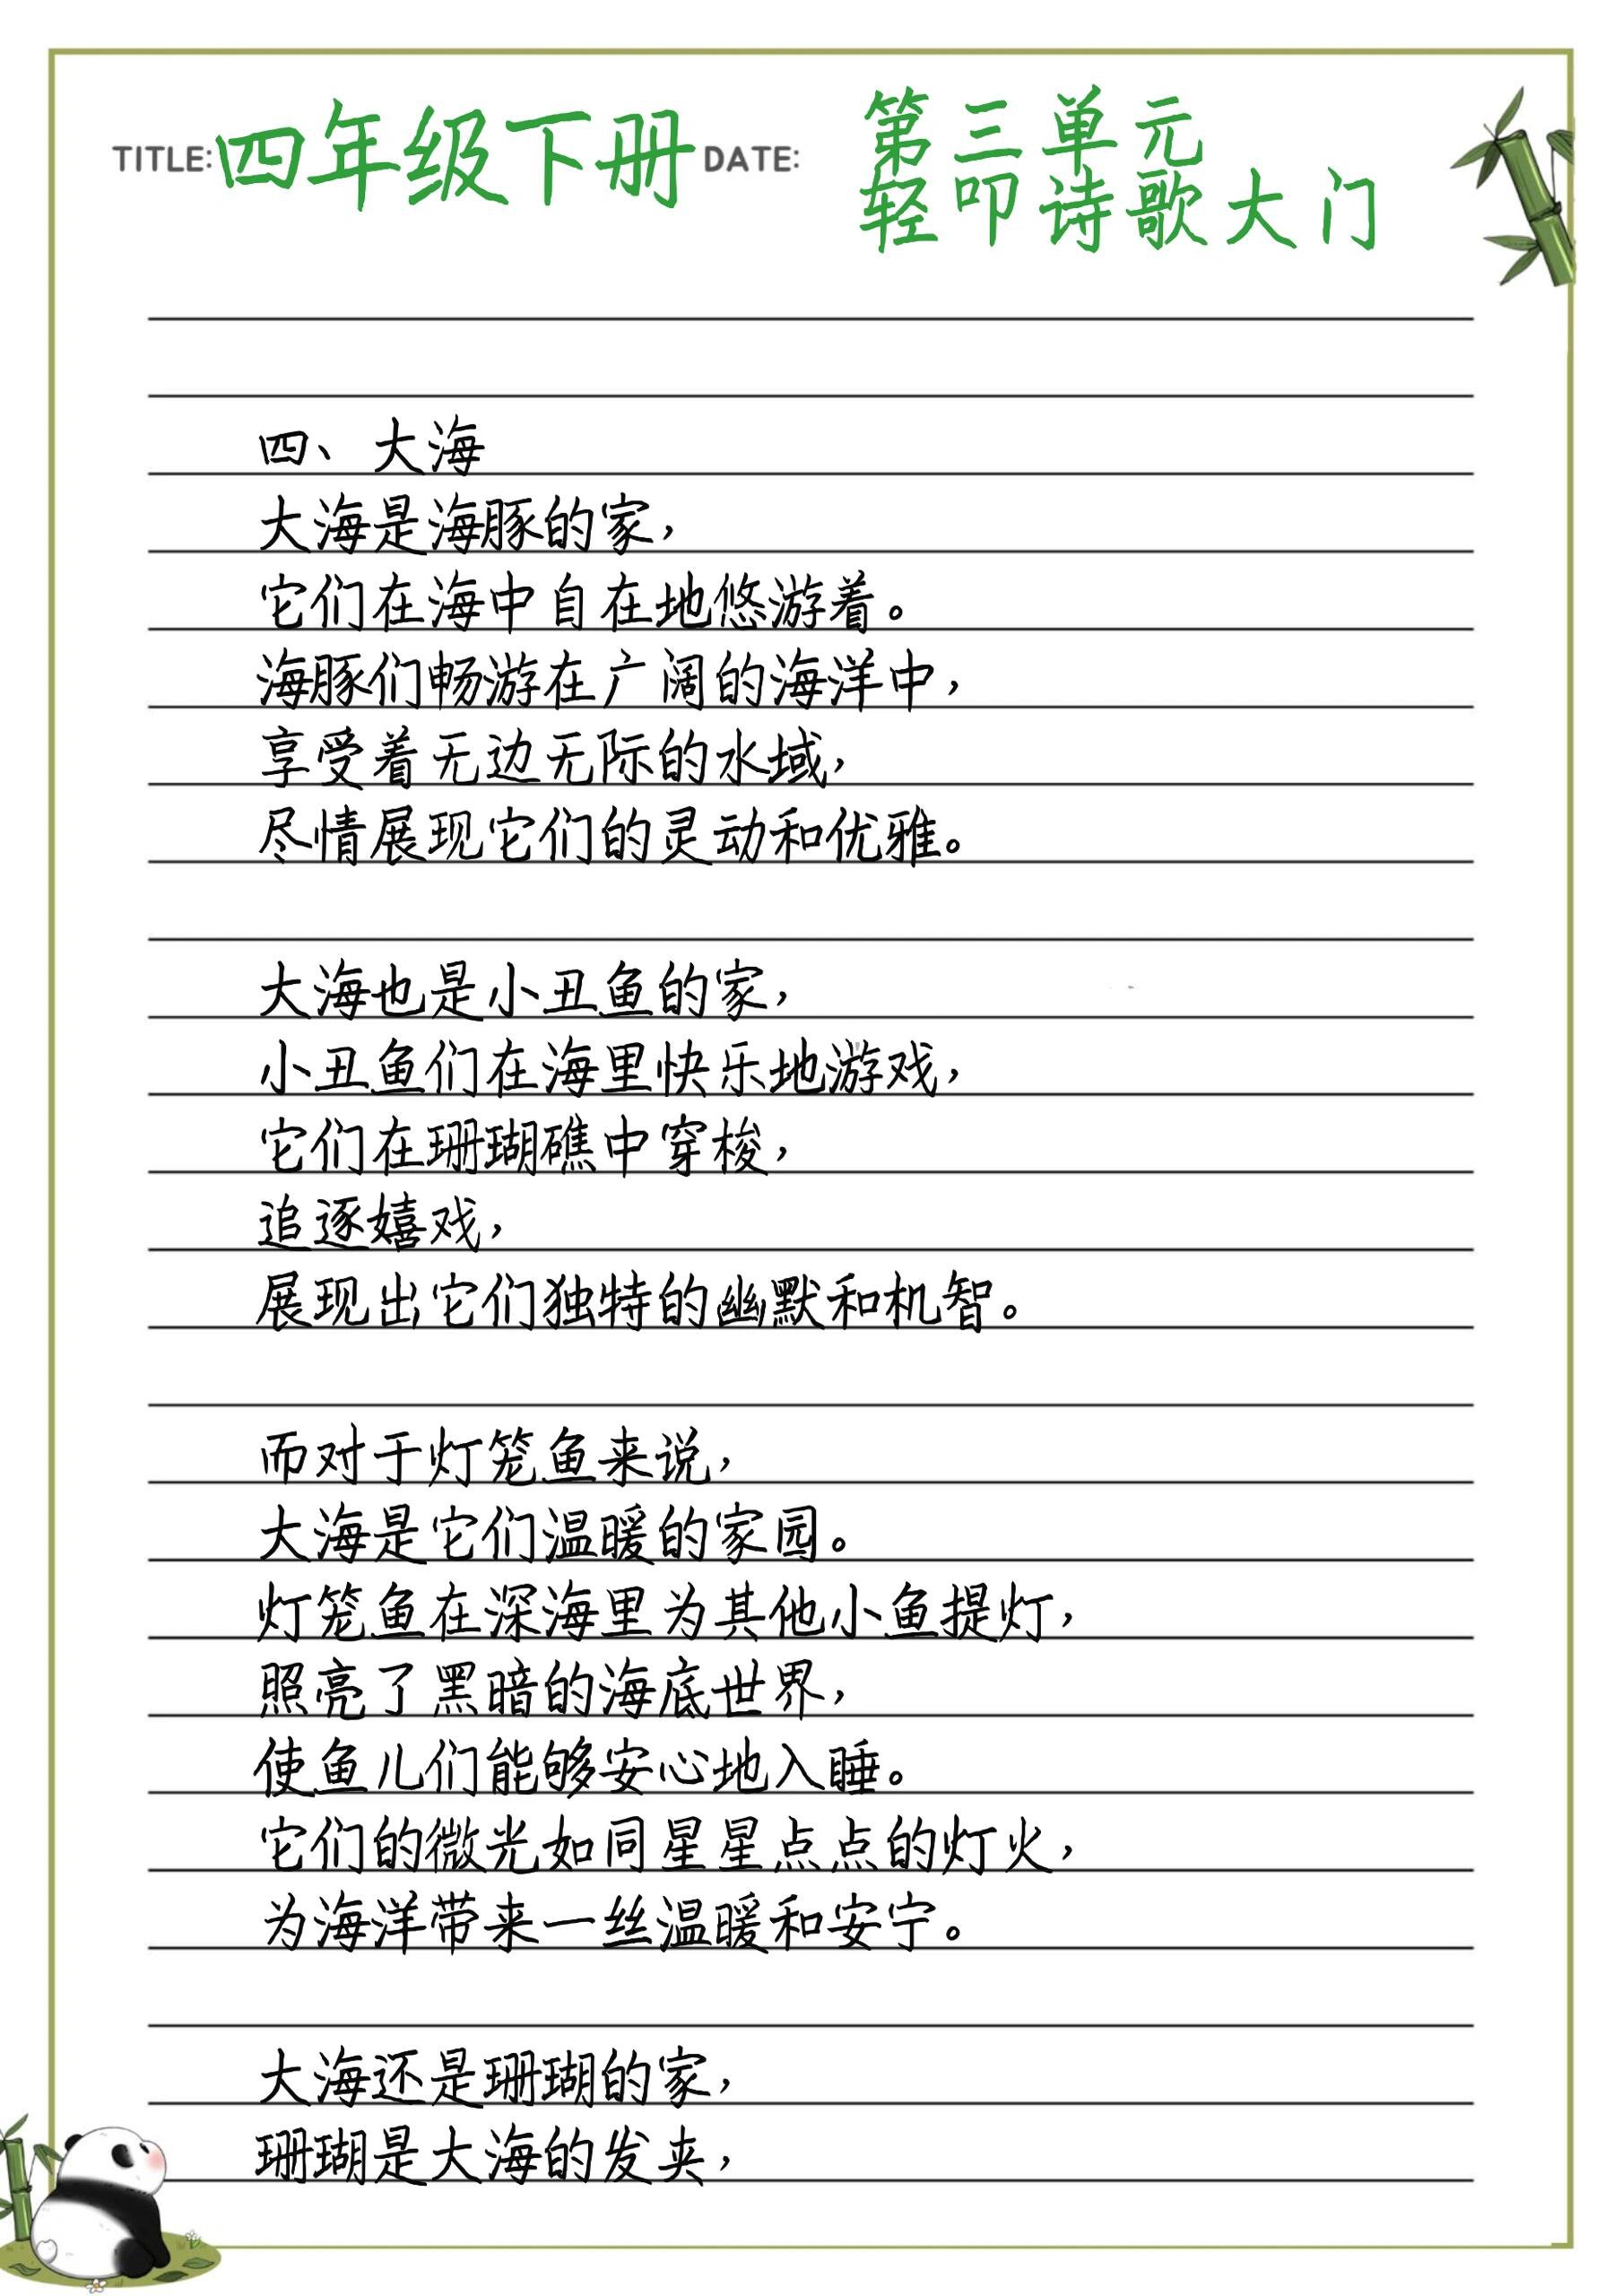 TITLE: 四年级下册 DATE: 第三单元
轻叩诗歌大门
四、大海
大海是海豚的家，
它们在海中自在地悠游着。
海豚们畅游在广阔的海洋中，
享受着无边无际的水域，
尽情展现它们的灵动和优雅。
大海也是小丑鱼的家，
小丑鱼们在海里快乐地游戏，
它们在珊瑚礁中穿梭，
追逐嬉戏，
展现出它们独特的幽默和机智。
而对于灯笼鱼来说，
大海是它们温暖的家园。
灯笼鱼在深海里为其他小鱼提灯，
照亮了黑暗的海底世界，
使鱼儿们能够安心地入睡。
它们的微光如同星星点点的灯火，
为海洋带来一丝温暖和安宁。
大海还是珊瑚的家，
珊瑚是大海的发夹，